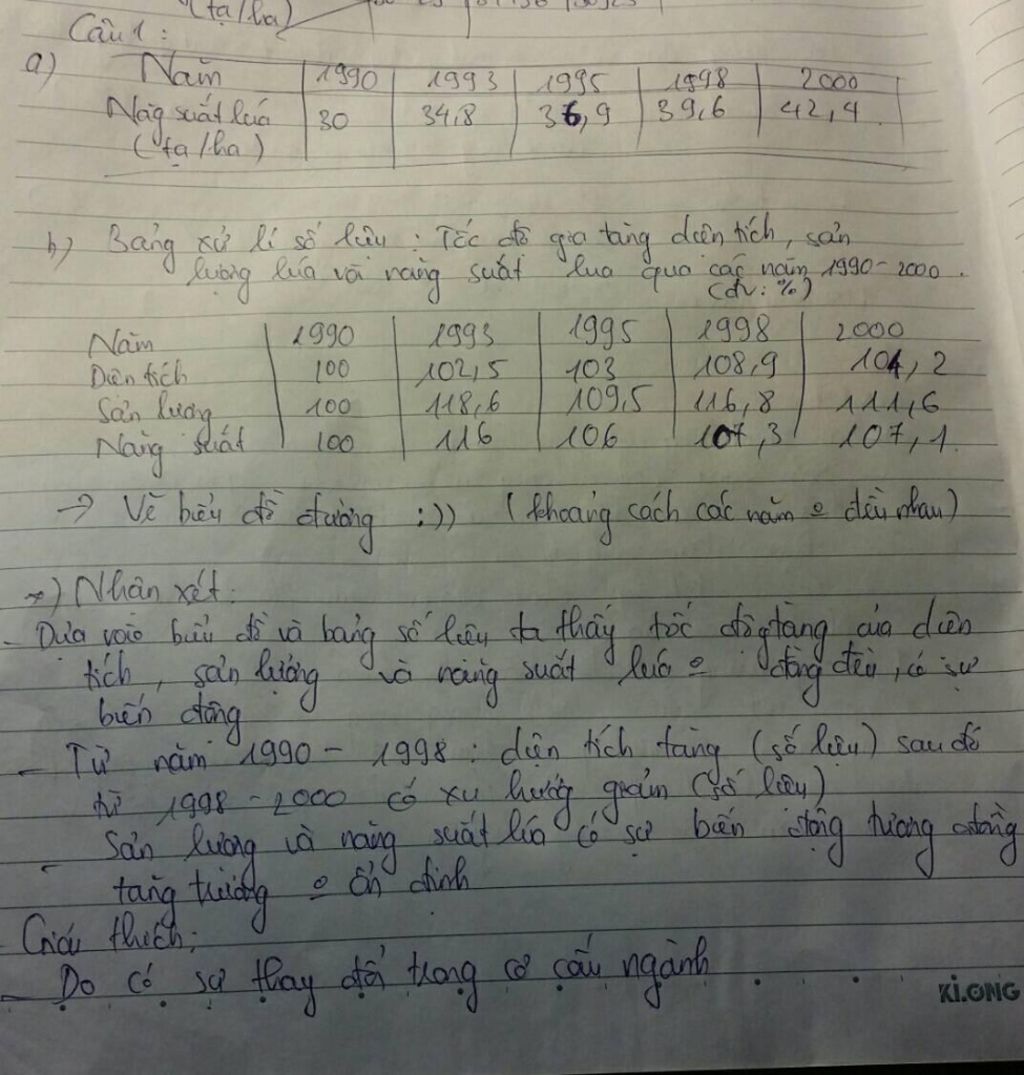 (tạ/ha)
Câu 1:
a) Năm 1990 1993 1995 1998 2000
Năg suất lúa 30 34,8 36,9 39,6 42,4
(tạ/ha)
b) Bảng xử lí số liệu: Tốc độ gia tăng diện tích, sản
lượng lúa và năng suất lúa qua các năm 1990-2000.
(đv: %)
Năm 1990 1993 1995 1998 2000
Diện tích 100 102,5 103 108,9 104,2
Sản lượng 100 118,6 109,5 116,8 111,6
Năng suất 100 116 106 107,3 107,1
→ Vẽ biểu đồ đường :)) (khoảng cách các năm o đều nhau)
*) Nhận xét:
- Dựa vào biểu đồ và bảng số liệu ta thấy tốc độ gtăng của diện
tích, sản lượng và năng suất lúa o đồng đều, có sự
biến động
- Từ năm 1990 - 1998: diện tích tăng (số liệu) sau đó
từ 1998-2000 có xu hướg giảm (số liệu)
- Sản lượng và năng suất lúa có sự biến động tương đồng
tăng trưởng o ổn định
Giải thích:
- Do có sự thay đổi trong cơ cấu ngành
KI.ONG